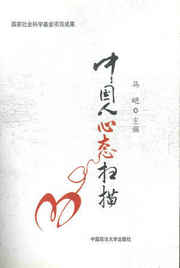 国家社会科学基金项目成果
中国人心态扫描
马皑 主编
中国政法大学出版社